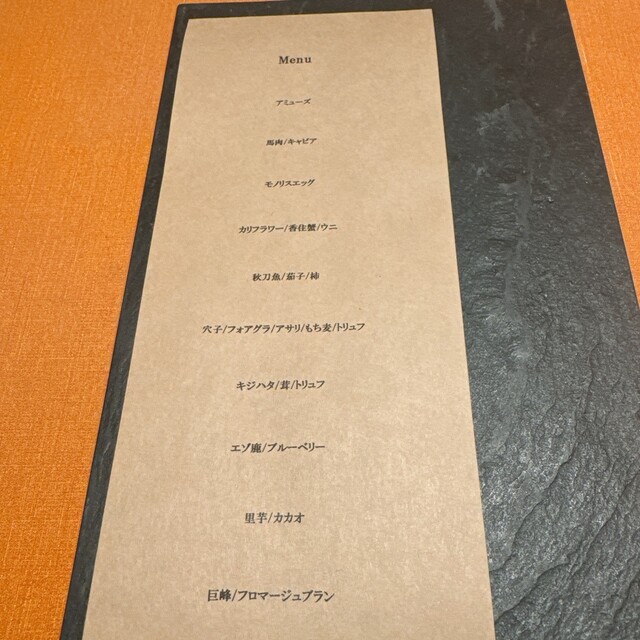 Menu
アミューズ
馬肉/キャビア
モノリスエッグ
カリフラワー/香住蟹/ウニ
秋刀魚/茄子/柿
穴子/フォアグラ/アサリ/もち麦/トリュフ
キジハタ/茸/トリュフ
エゾ鹿/ブルーベリー
里芋/カカオ
巨峰/フロマージュブラン